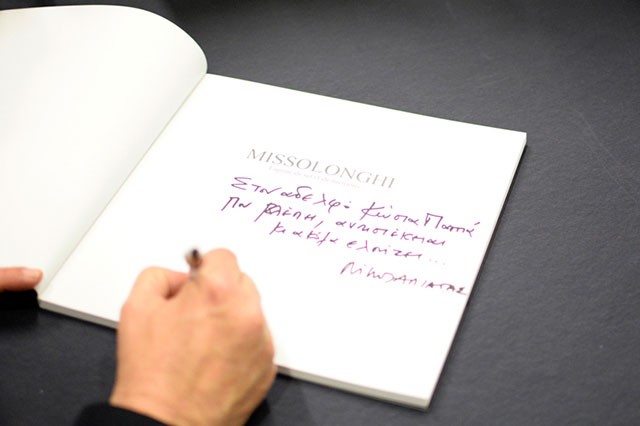 MISSOLONGHI
Στον αδελφό Κώστα Παππά
Που βλέπει, αντιστέκεται
κι ακόμα ελπίζει...
ΝίΚΟΣ ΑΛΙΑΓΑΣ